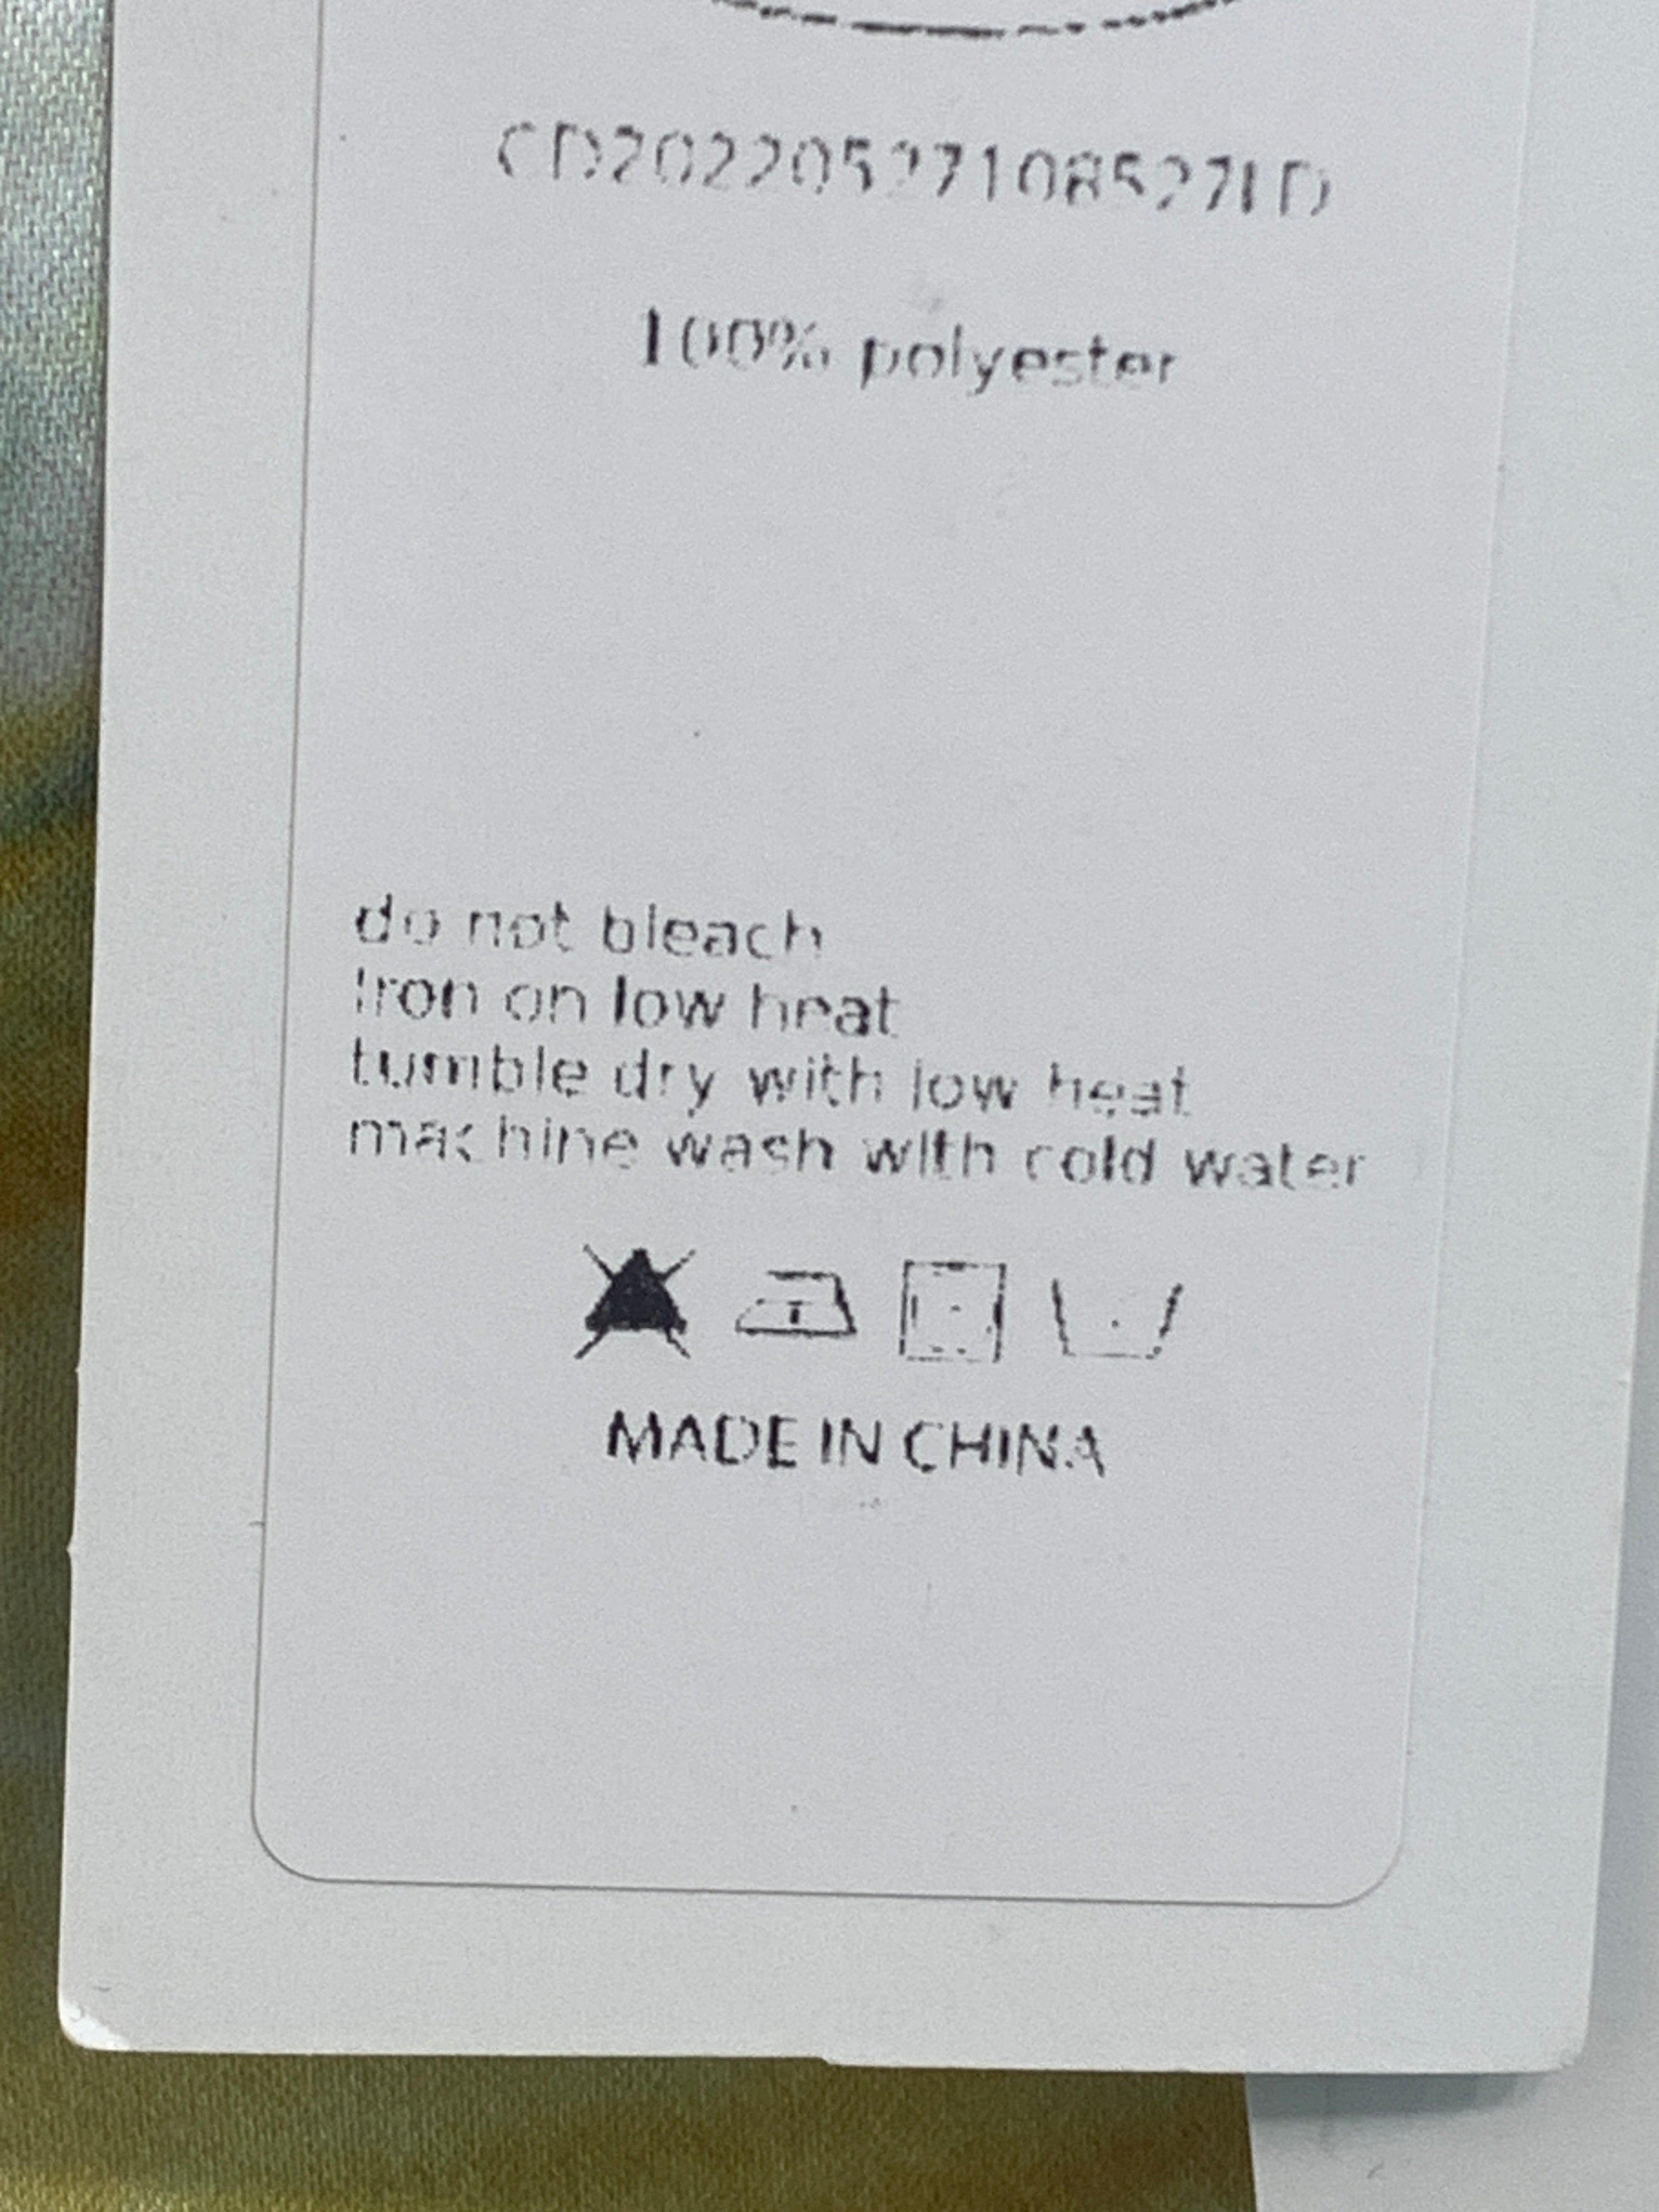 CD20220527108527LD
100% polyester
do not bleach
Iron on low heat
tumble dry with low heat
machine wash with cold water
MADE IN CHINA